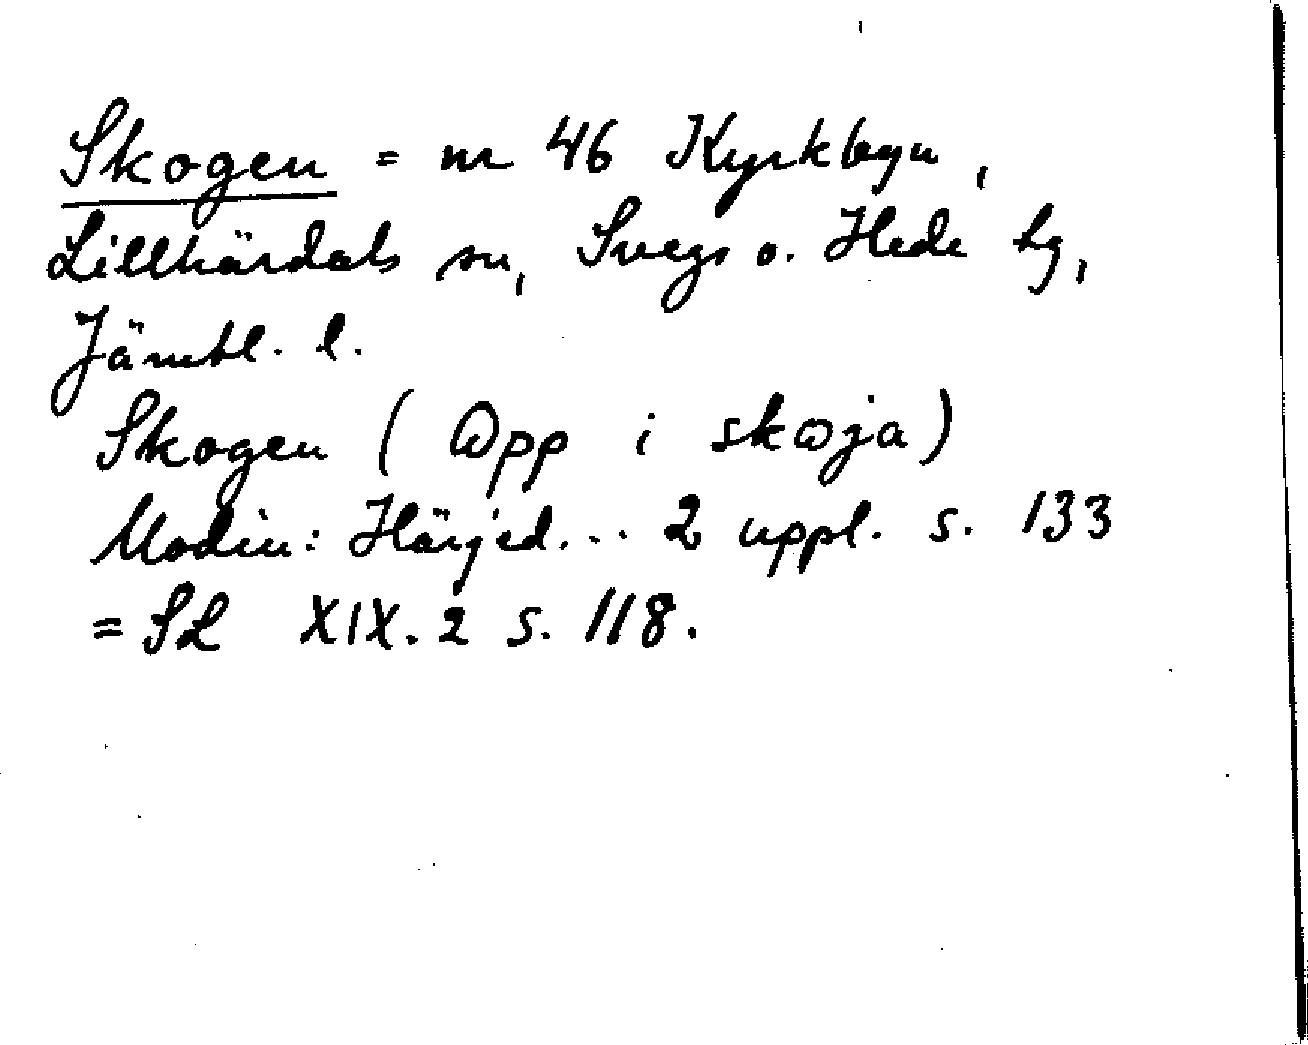 Skogen = nr 46 Kyrkbyn,
Lillhärdals sn, Svegs o. Hede tg,
Jämtl. l.
Skogen (Ɯpp i skɷja)
Modin: Härjed... 2 uppl. s. 133
= SL XIX. 2 s. 118.